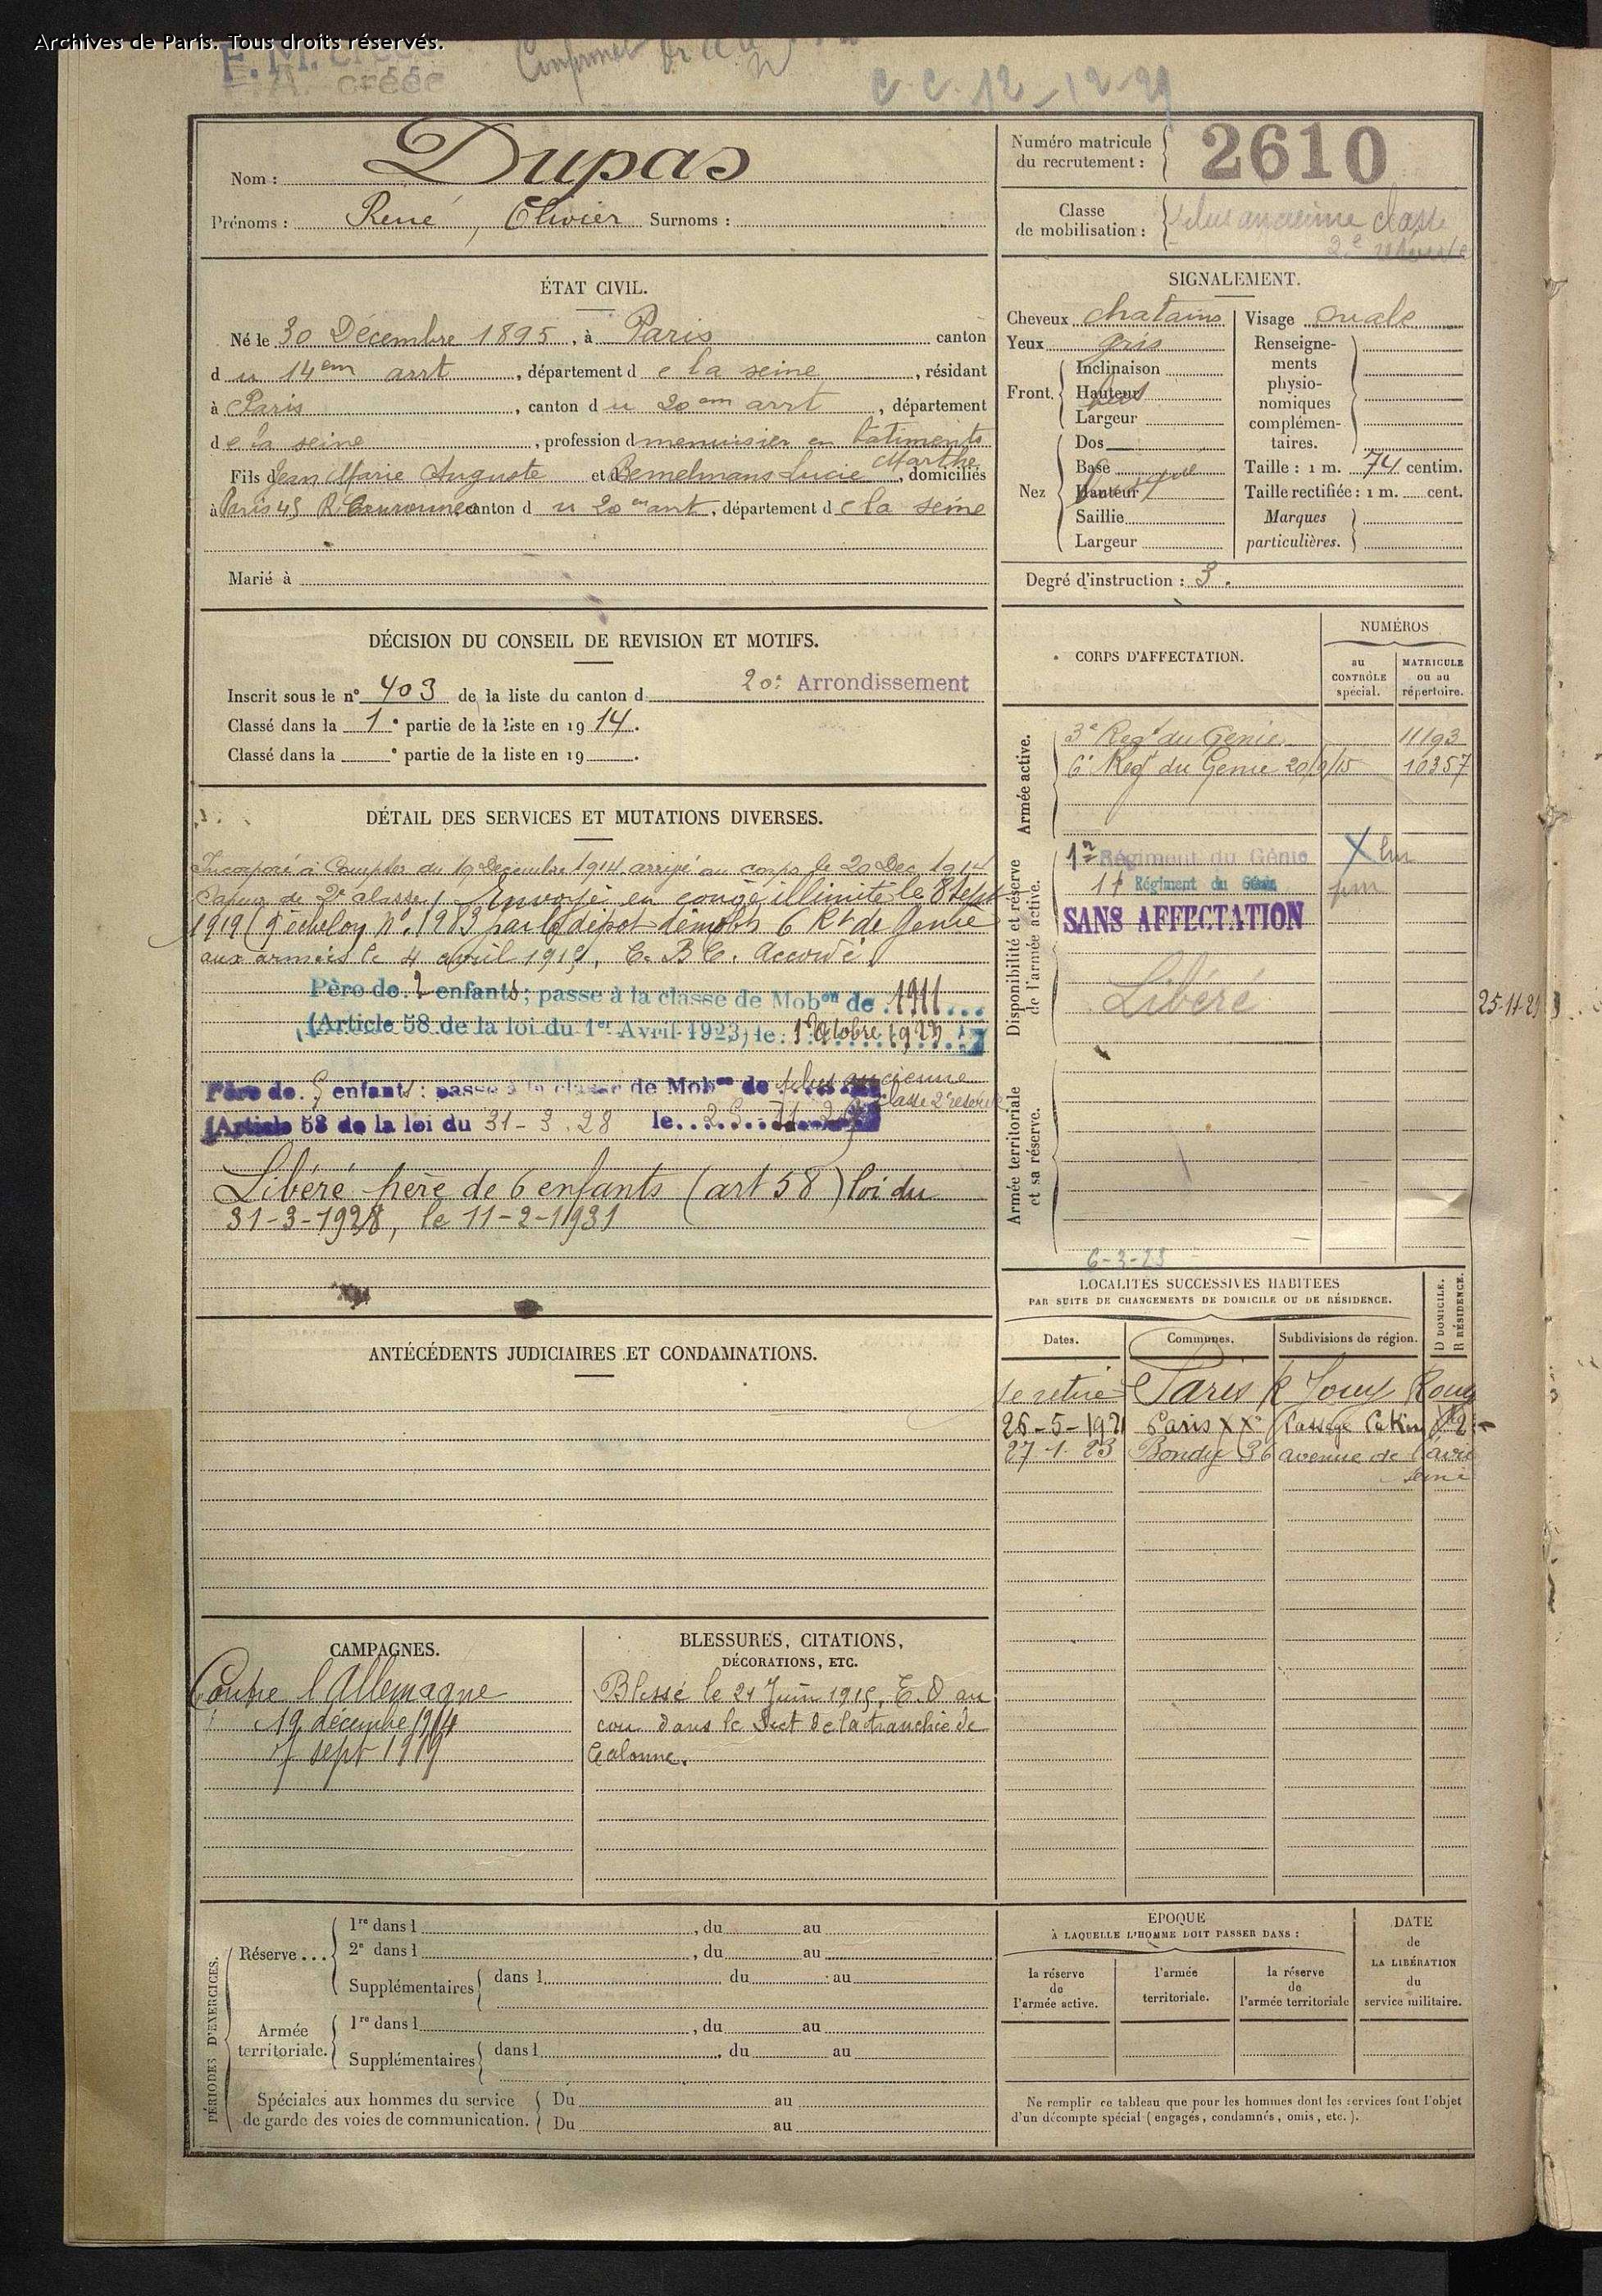 Archives de Paris. Tous droits réservés.
créée
C.C. 12-12-29
Nom : Dupas
Prénoms : René, Olivier Surnoms :
Numéro matricule
du recrutement : 2610
Classe
de mobilisation : plus ancienne classe
2e réserve
ÉTAT CIVIL.
Né le 30 Décembre 1895, à Paris canton
du 14em arrt, département de la seine, résidant
à Paris, canton du 20em arrt, département
de la seine, profession d menuisier en batiments
Fils d Jean Marie Auguste et d Bemelmans Lucie Marthe, domiciliés
à Paris 45 R. Couronnes canton du 20em arrt, département de la seine
Marié à
SIGNALEMENT.
Cheveux chatains
Yeux gris
Front. Inclinaison
Hauteur
Largeur
Nez Dos
Base
Hauteur
Saillie
Largeur
Visage ovale
Renseigne-
ments
physio-
nomiques
complémen-
taires.
Taille : 1 m. 74 centim.
Taille rectifiée : 1 m. cent.
Marques
particulières.
Degré d'instruction : 3.
DÉCISION DU CONSEIL DE REVISION ET MOTIFS.
Inscrit sous le n° 403 de la liste du canton d 20e Arrondissement
Classé dans la 1e partie de la liste en 1914.
Classé dans la e partie de la liste en 19 .
DÉTAIL DES SERVICES ET MUTATIONS DIVERSES.
Incorporé à Compter du 19 Décembre 1914 arrivé au corps le 20 Dec 1914
Sapeur de 2e classe. Envoyé en congé illimité le 8 Sept
1919 (9e échelon n° 1983 par le dépot démobr 6 Rt de Genie
aux armées le 4 avril 1915. C. B. C. Accordé
Père de 2 enfants; passe à la classe de Mobon de 1911
(Article 58 de la loi du 1er Avril 1923) le: 1 Octobre 1923
Père de 5 enfants: passe à la classe de Mobon de plus ancienne
classe 2e réserve
(Article 58 de la loi du 31-3.28 le 25 11 29
Libéré père de 6 enfants (art 58) loi du
31-3-1928, le 11-2-1931
CORPS D'AFFECTATION.
NUMÉROS
au
CONTRÔLE
spécial.
MATRICULE
ou au
répertoire.
Armée active.
3e Regt du Génie 11193
6e Regt du Genie 20/9/15 10357
Disponibilité et réserve
de l'armée active.
1er Régiment du Génie
11 Régiment du Génie
SANS AFFECTATION
Libéré
25-11-29
Armée territoriale
et sa réserve.
6-3-23
LOCALITÉS SUCCESSIVES HABITÉES
PAR SUITE DE CHANGEMENTS DE DOMICILE OU DE RÉSIDENCE.
Dates.
Communes.
Subdivisions de région.
D DOMICILE.
R RÉSIDENCE.
se retire Paris R Jouy Rouve
26-5-1921 Paris XXe Passage
27.1.23 Bondy 36 avenue de
seine
ANTÉCÉDENTS JUDICIAIRES ET CONDAMNATIONS.
CAMPAGNES.
Contre l'Allemagne
19 décembre 1914
7 sept 1919
BLESSURES, CITATIONS,
DÉCORATIONS, ETC.
Blessé le 21 Juin 1915, E.O au
cou dans le Sect de la tranchée de
Calonne.
PÉRIODES D'EXERCICES.
Réserve ... 1re dans l , du au
2e dans l , du au
Supplémentaires dans l du au
Armée
territoriale. 1re dans l , du au
Supplémentaires dans l , du au
Spéciales aux hommes du service
de garde des voies de communication.
Du au
Du au
EPOQUE
À LAQUELLE L'HOMME DOIT PASSER DANS :
la réserve
de
l'armée active.
l'armée
territoriale.
la réserve
de
l'armée territoriale
DATE
de
LA LIBÉRATION
du
service militaire.
Ne remplir ce tableau que pour les hommes dont les services font l'objet
d'un décompte spécial (engagés, condamnés, omis, etc.).